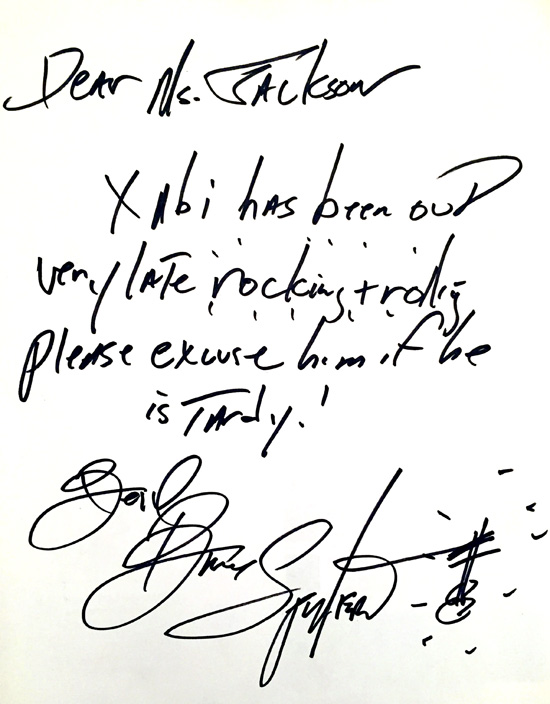 Dear Ms. Jackson
Xabi has been out
very late rocking + rollig
please excuse him if he
is Tardy!
Bruce Springsteen